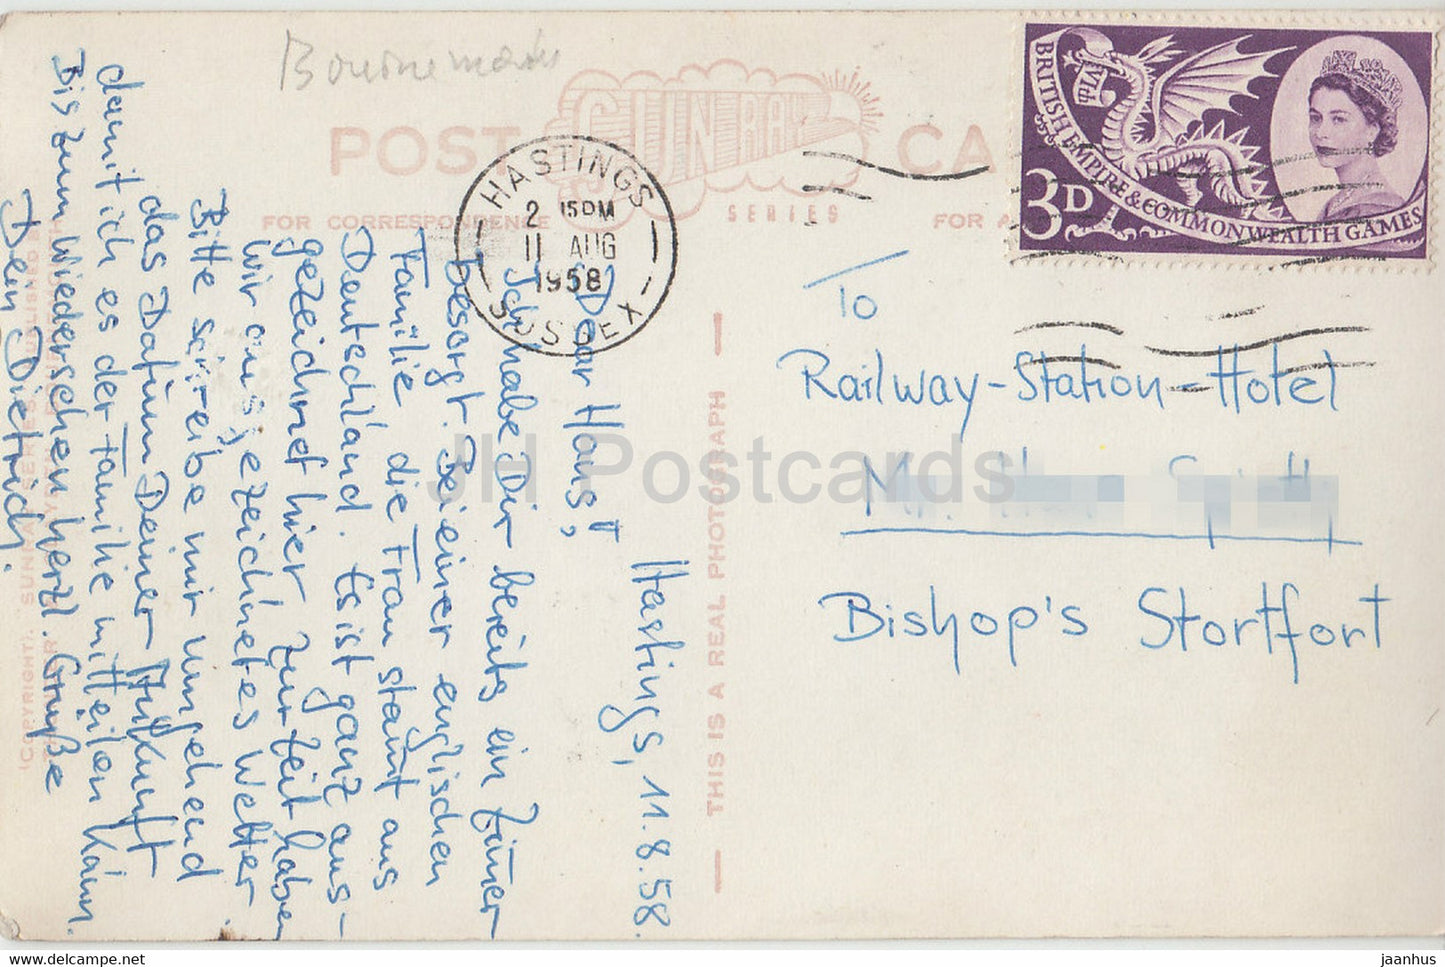 Bournemouth
POST CA
SUNRAY
SERIES
FOR CORRESPONDENCE
FOR A
HASTINGS
2 15 PM
11 AUG
1958
SUSSEX
BRITISH EMPIRE & COMMONWEALTH GAMES
3D
Hastings, 11.8.58.
Dear Hans,
Ich habe Dir bereits ein Zimmer
besorgt. Bei einer englischen
Familie, die Frau stamt aus
Deutschland. Es ist ganz aus-
gezeichnet hier. Zur Zeit haben
wir ausgezeichnetes Wetter.
Bitte schreibe mir umgehend
das Datum Deiner Ankunft
damit ich es der Familie mitteilen kann.
Bis zum Wiedersehen herzl. Grüße
Dein Dietrich.
To
Railway-Station-Hotel
Mr.
Bishop's Stortford
THIS IS A REAL PHOTOGRAPH
(COPYRIGHT). SUNRAY SERIES, PUBLISHED
JH Postcards
www.delcampe.net
jaanhus